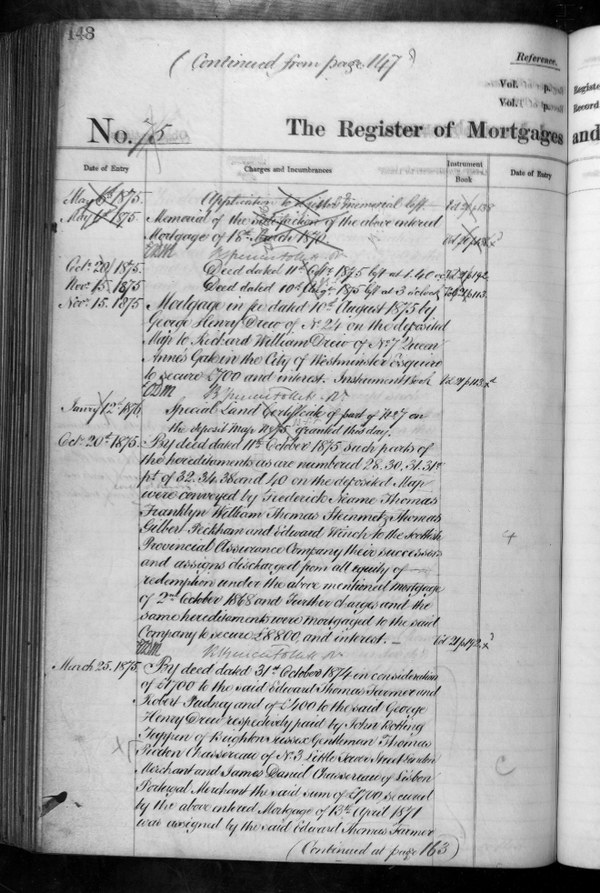 148
(Continued from page 147)
Reference.
Vol. p.
Vol. p.
No. 75 The Register of Mortgages
and
Registe
Record
Date of Entry
Charges and Incumbrances
Instrument Book
Date of Entry
May 6th 1875. Application to register memorial left Vol. 21 p. 138
May 6th 1875. Memorial of the satisfaction of the above entered
Mortgage of 18th March 1870. Vol. 21 p. 138
Octr. 20 1875. Deed dated 11th Octr. 1875 left at 1.40 Vol. 21 p. 192.
Novr. 15. 1875 Deed dated 10th Augt. 1875 left at 3 o'clock Vol. 21 p. 113.
Novr. 15. 1875 Mortgage in fee dated 10th August 1875 by
George Henry Drew of No. 24 on the deposited
Map to Richard William Drew of No. 7 Queen
Anne's Gate in the City of Westminster Esquire
to secure £700 and interest. Instrument Book Vol. 21 p. 113.
Jany. 12th 1876 Special Land Certificate of part of No. 27 on
the deposit Map No. 75, granted this day.
Octr. 20th 1875. By deed dated 11th October 1875 such parts of
the hereditaments as are numbered 28. 30. 31. 31a
pt of 32. 34. 38 and 40 on the deposited Map
were conveyed by Frederick Neame Thomas
Franklyn William Thomas Steinmetz Thomas
Gilbert Peckham and Edward Winch to the Scottish
Provincial Assurance Company their successors
and assigns discharged from all equity of
redemption under the above mentioned Mortgage
of 2nd October 1868 and Further charges and the
same hereditaments were mortgaged to the said
Company to secure £8800, and interest. Vol. 21 p. 192.
March 25. 1875. By deed dated 31st October 1874 in consideration
of £1700 to the said Edward Thomas Farmer and
Robert Pudney and of £400 to the said George
Henry Drew respectively paid by John
of Brighton Sussex Gentleman Thomas
Chassereau of No. 3 Little Street London
Merchant and James Daniel Chassereau of Lisbon
Portugal Merchant the said sum of £1700 secured
by the above entered Mortgage of 13th April 1871
was assigned by the said Edward Thomas Farmer
(Continued at page 163)